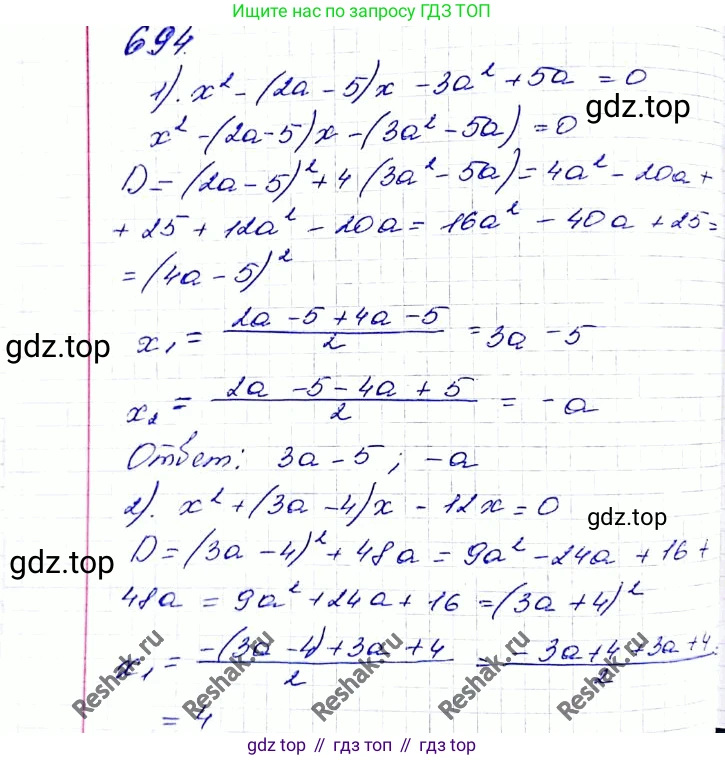 Ищите нас по запросу ГДЗ ТОП
694.
1). x² - (2a - 5)x - 3a² + 5a = 0
gdz.top
x² - (2a - 5)x - (3a² - 5a) = 0
D = (2a - 5)² + 4(3a² - 5a) = 4a² - 20a +
+ 25 + 12a² - 20a = 16a² - 40a + 25 =
= (4a - 5)²
gdz.top
x₁ = (2a - 5 + 4a - 5)/2 = 3a - 5
x₂ = (2a - 5 - 4a + 5)/2 = -a
Ответ: 3a - 5; -a
2). x² + (3a - 4)x - 12x = 0
gdz.top
D = (3a - 4)² + 48a = 9a² - 24a + 16 +
gdz.top
48a = 9a² + 24a + 16 = (3a + 4)²
x₁ = (-(3a - 4) + 3a + 4)/2 = (-3a + 4 + 3a + 4)/2
= 4
Reshak.ru
Reshak.ru
Reshak.ru
Reshak.ru
gdz top // гдз топ // gdz.top